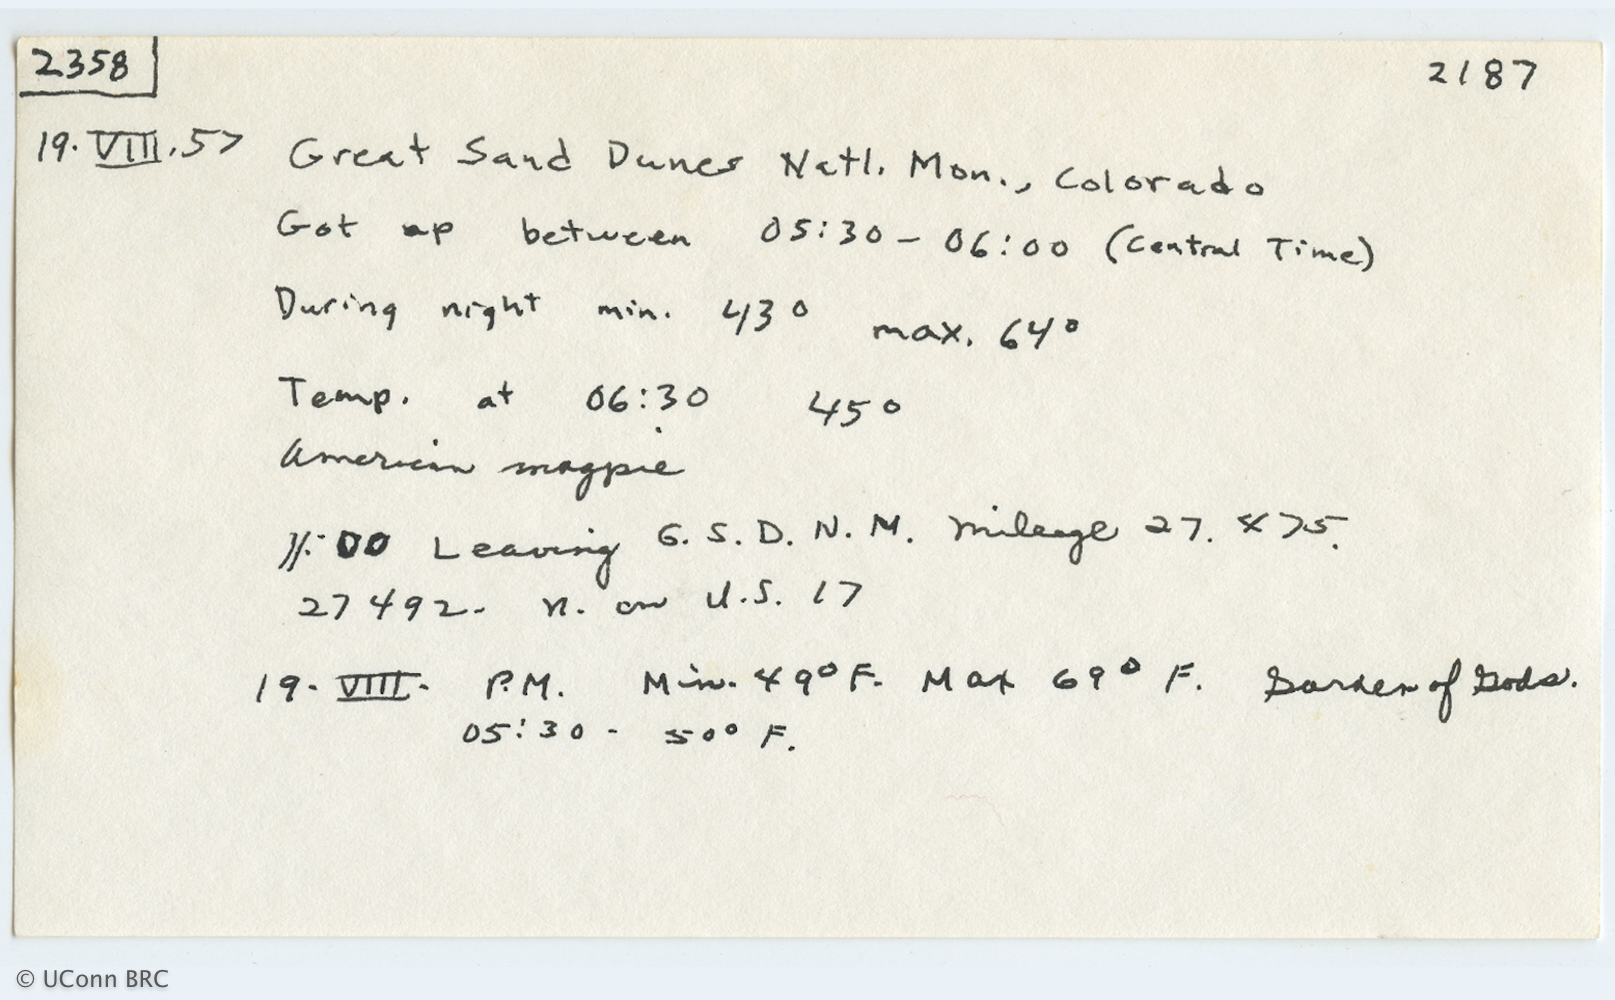 2358
2187
19.VIII.57 Great Sand Dunes Natl. Mon., Colorado
Got up between 05:30 - 06:00 (Central Time)
During night min. 43° max. 64°
Temp. at 06:30 45°
American magpie
11:00 Leaving G.S.D.N.M. Mileage 27.475.
27492- n. on U.S. 17
19.VIII. P.M. Min. 49°F. Max 69° F. Garden of Gods.
05:30 - 50° F.
© UConn BRC